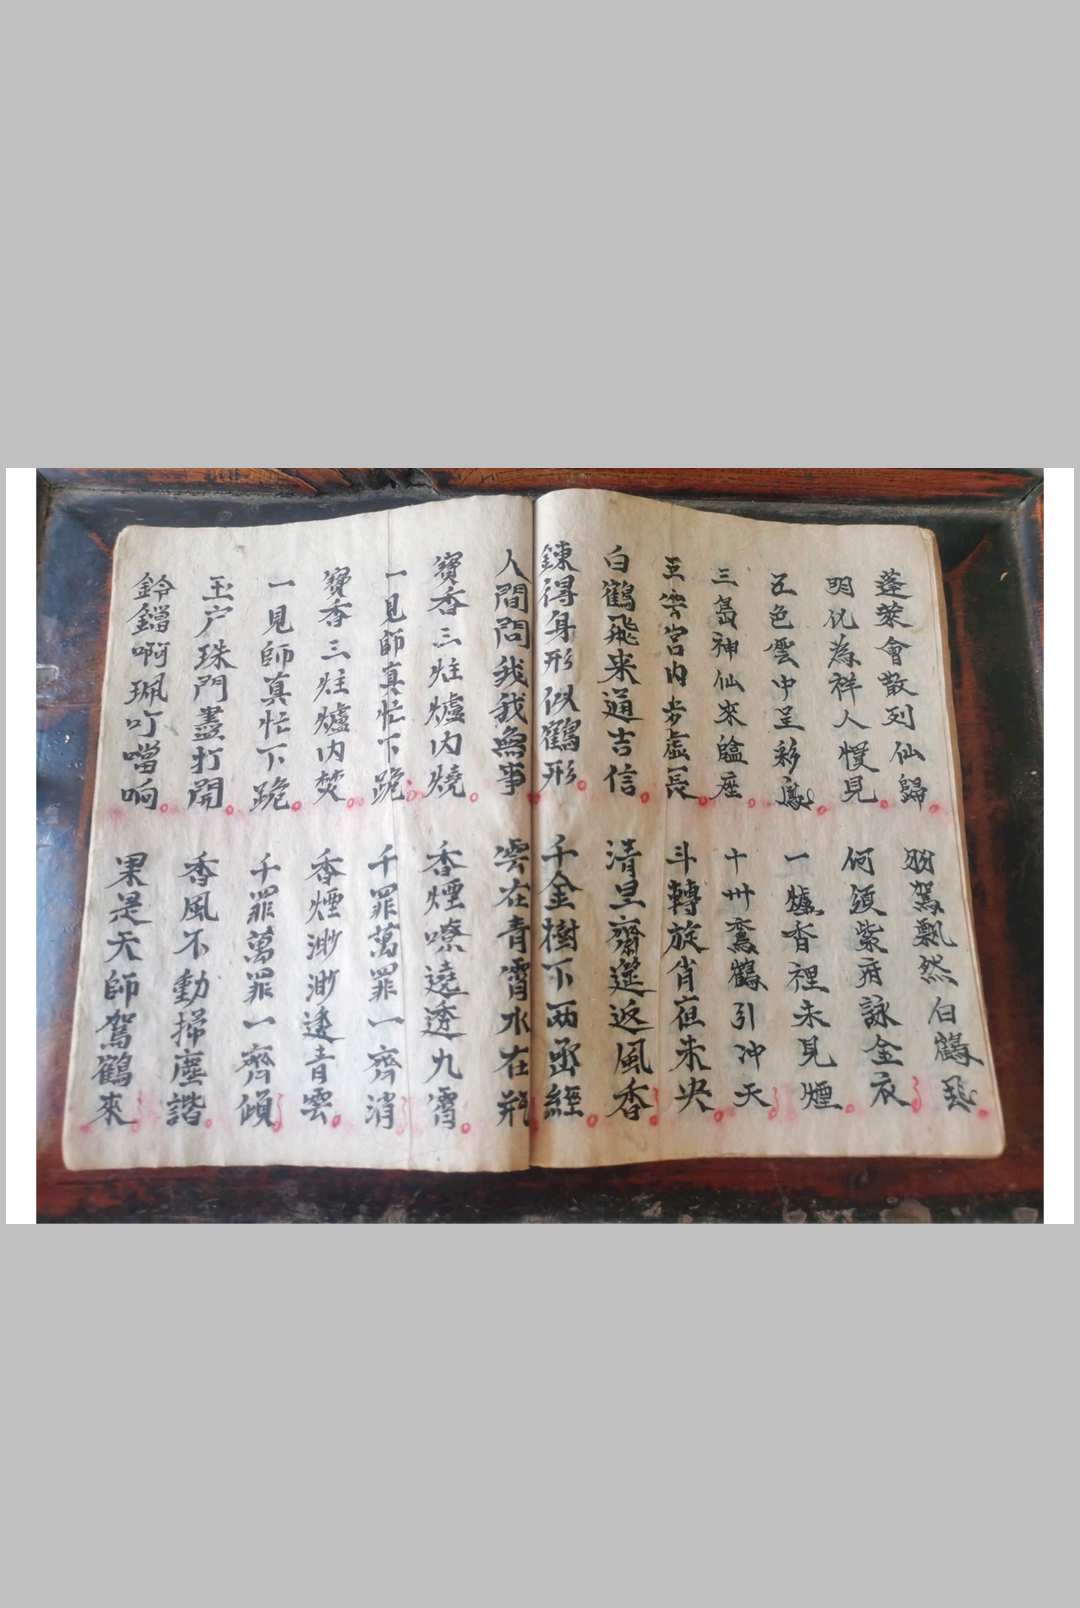 蓬萊會散列仙歸 駕飄然白鶴
明化為祥人慢見 何須紫府詠金衣
五色雲中呈彩鳳 一爐香裡未見煙
三島神仙來臨座 十卅鸞鶴引冲天
玉宮内步虛長 斗轉旋肖夜未央
白鶴飛来通吉信 清皇齋筵返風香
鍊得身形似鶴形 千金樹下兩丞經
人間問我我無事 雲在青霄水在瓶
寶香三炷爐内燒 香煙嘹遶透九霄
一見師真忙下跪 千罪萬罪一齊消
寶香三炷爐内焚 香煙渺渺透青雲
一見師真忙下跪 千罪萬罪一齊傾
玉户珠門盡打開 香風不動掃塵諧
鈴鐺啊珮叮噹响 果是天師駕鶴來